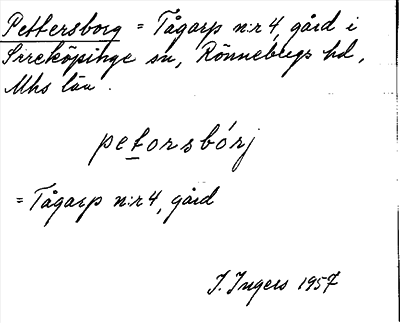 Pettersborg = Tågarp n:r 4, gård i
Sireköpinge sn, Rönnebergs hd,
Mhs län.
petorsbórj
= Tågarp n:r 4, gård
I. Ingers 1957